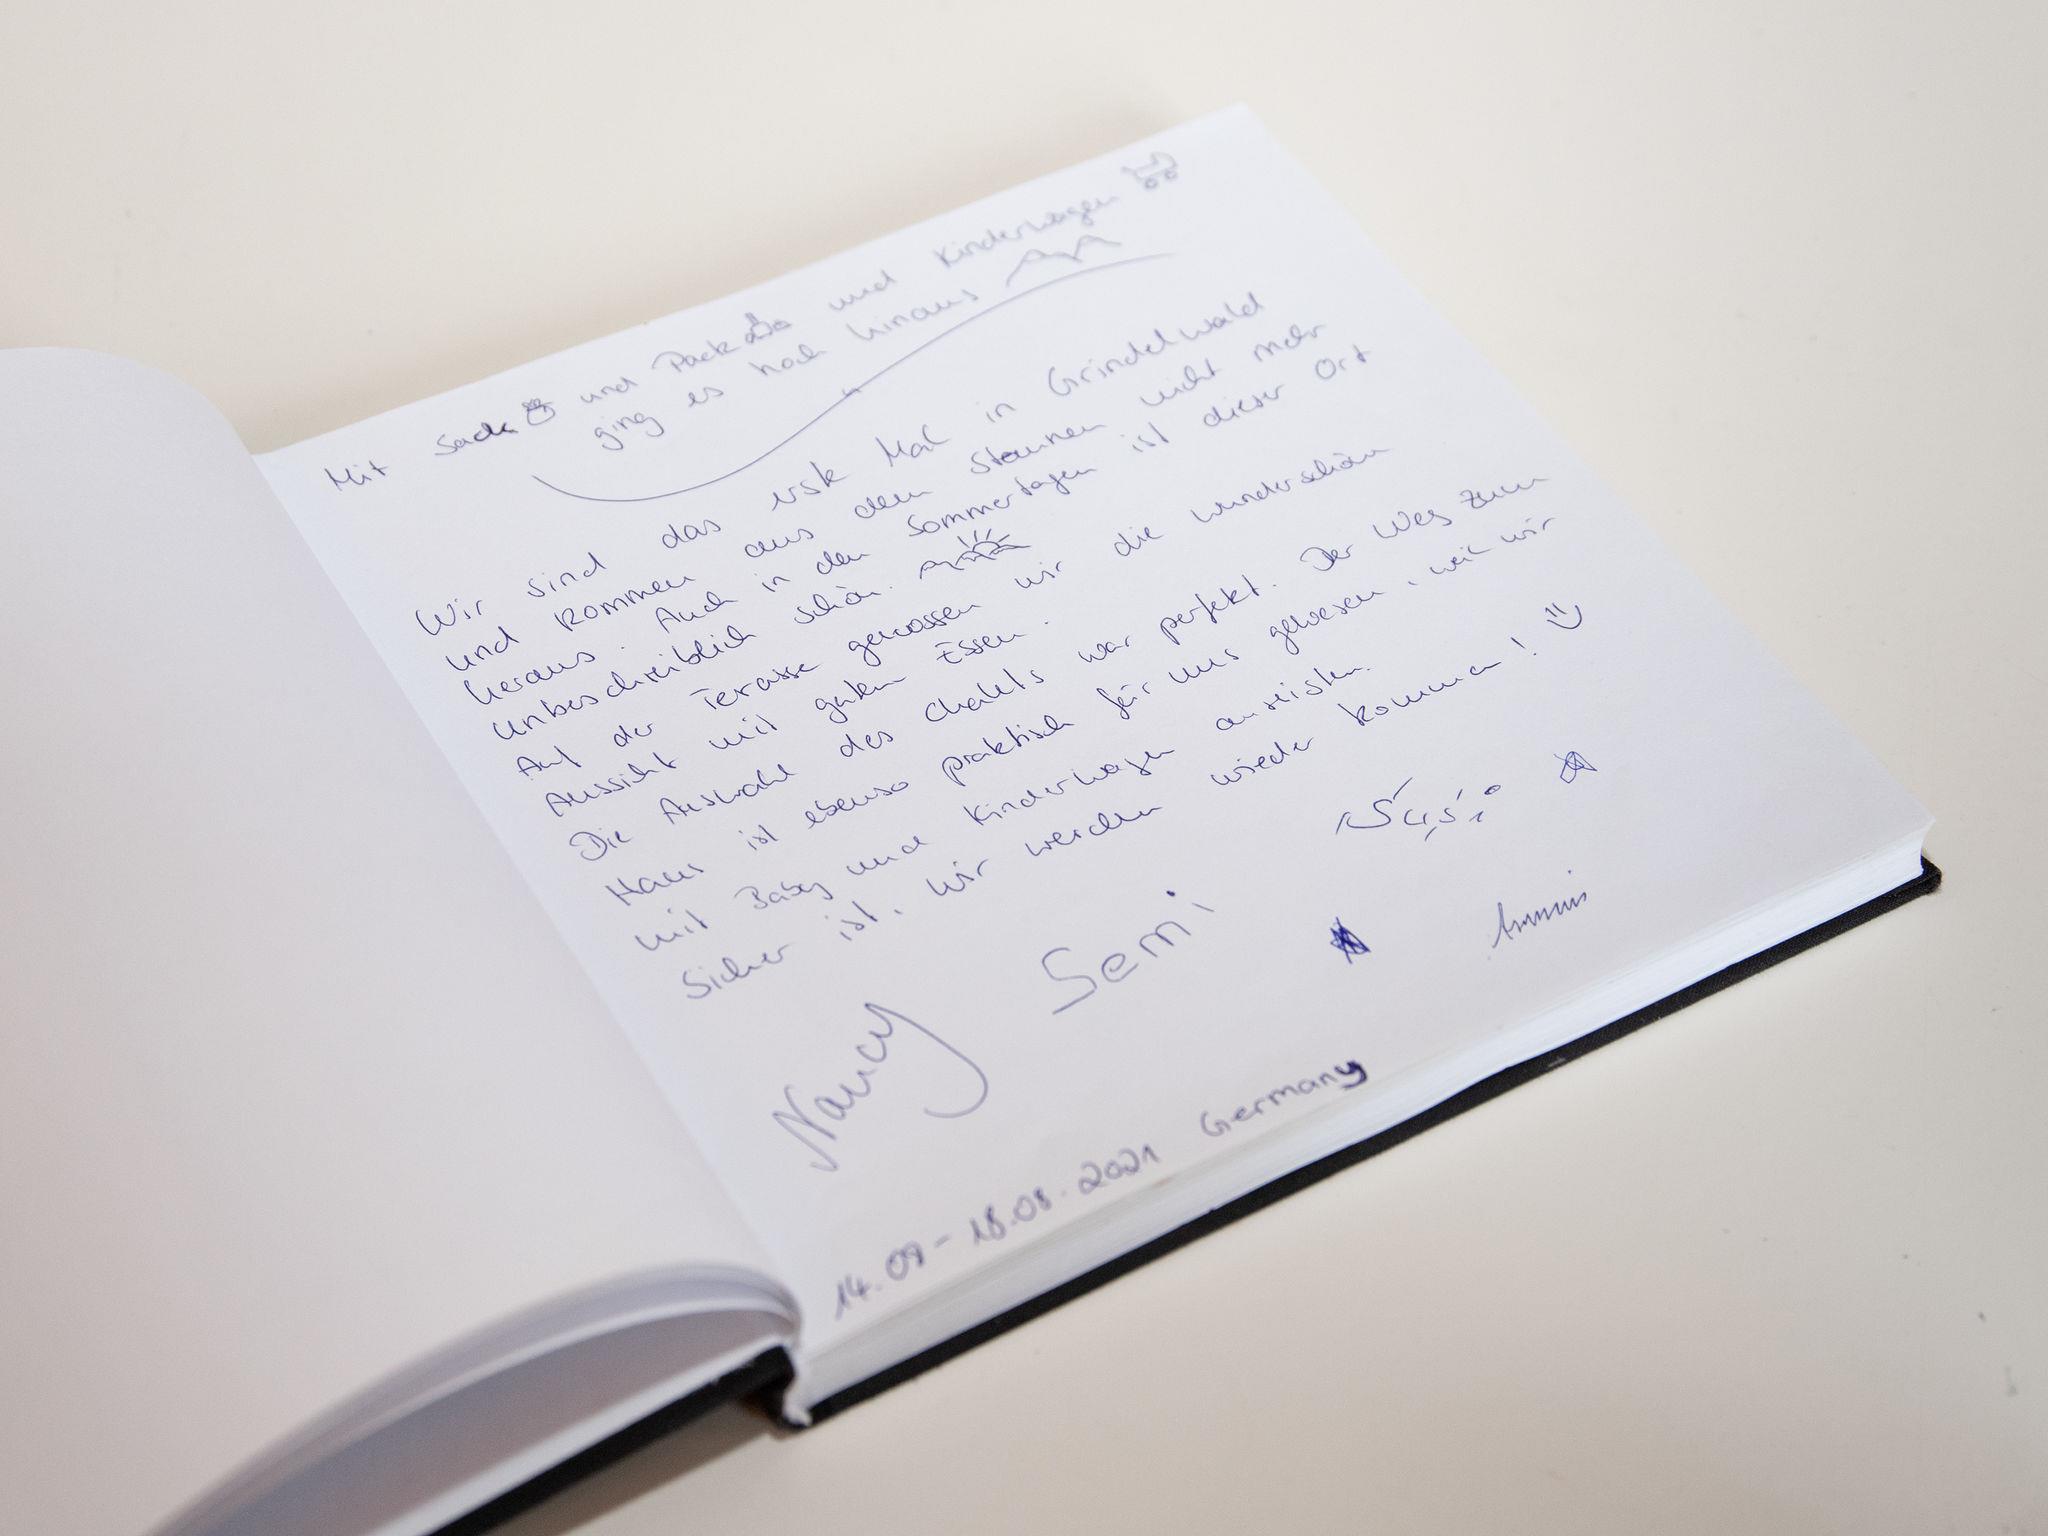 Mit Sack und Pack und Kinderwagen
ging es hoch hinaus
Wir sind das erste Mal in Grindelwald
und kommen aus dem Staunen nicht mehr
heraus. Auch in den Sommertagen ist dieser Ort
unbeschreiblich schön.
Auf der Terasse genossen wir die wunderschön
Aussicht mit guten Essen.
Die Auswahl des Chalets war perfekt. Der Weg zum
Haus ist ebenso praktisch für uns gewesen, weil wir
mit Baby und Kinderwagen anreisten.
Sicher ist, wir werden wieder kommen!
Nancy Semi
14.09-18.08.2021 Germany